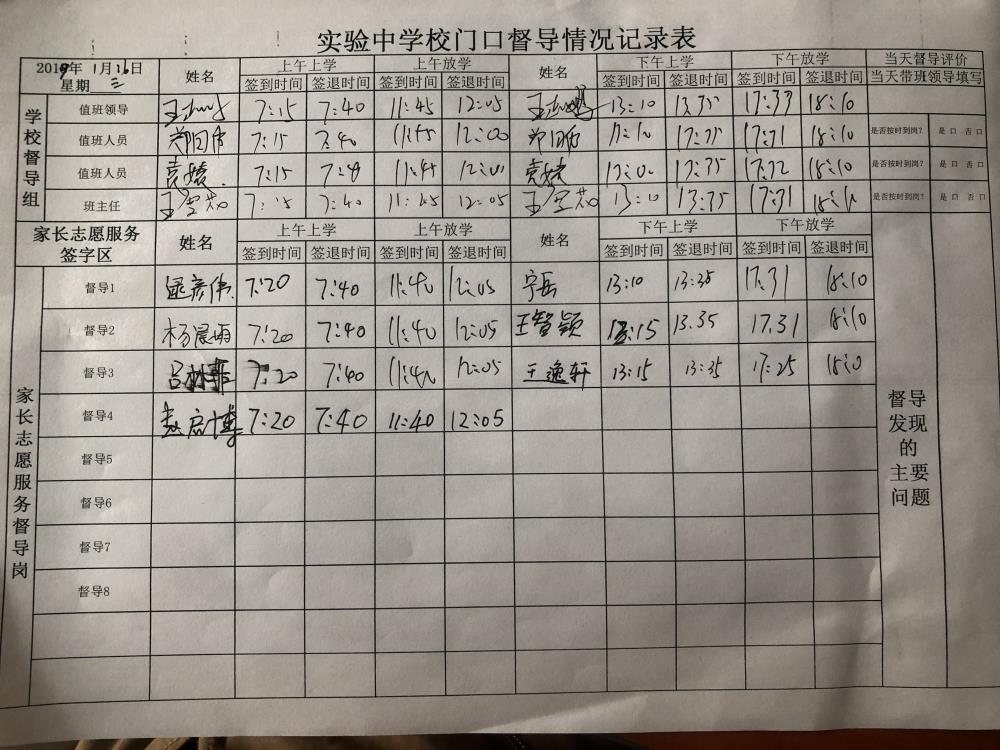 实验中学校门口督导情况记录表
2019年1月16日 星期三 姓名 上午上学 上午放学 姓名 下午上学 下午放学 当天督导评价
签到时间 签退时间 签到时间 签退时间 签到时间 签退时间 签到时间 签退时间 当天带班领导填写
学校督导组
值班领导 7:15 7:40 11:45 12:05 13:10 13:35 17:33 18:10
值班人员 7:15 7:40 12:00 17:31 18:10 是否按时到岗? 是口 否口
值班人员 袁媛 7:15 11:45 袁媛 17:32 18:10 是否按时到岗? 是口 否口
班主任 7:15 7:40 11:45 12:05 13:10 13:35 17:31 是否按时到岗? 是口 否口
家长志愿服务签字区 姓名 上午上学 上午放学 姓名 下午上学 下午放学
签到时间 签退时间 签到时间 签退时间 签到时间 签退时间 签到时间 签退时间
家长志愿服务督导岗
督导1 7:20 7:40 11:40 12:05 宁岳 13:10 13:35 17:31 18:10
督导2 杨晨雨 7:20 7:40 11:40 12:05 王智颖 13:15 13.35 17.31 18:10
督导3 7:20 7:40 11:40 12:05 王逸轩 13:15 13:35 17:25 18:10
督导4 赵启博 7:20 7:40 11:40 12:05
督导5
督导6
督导7
督导8
督导发现的主要问题